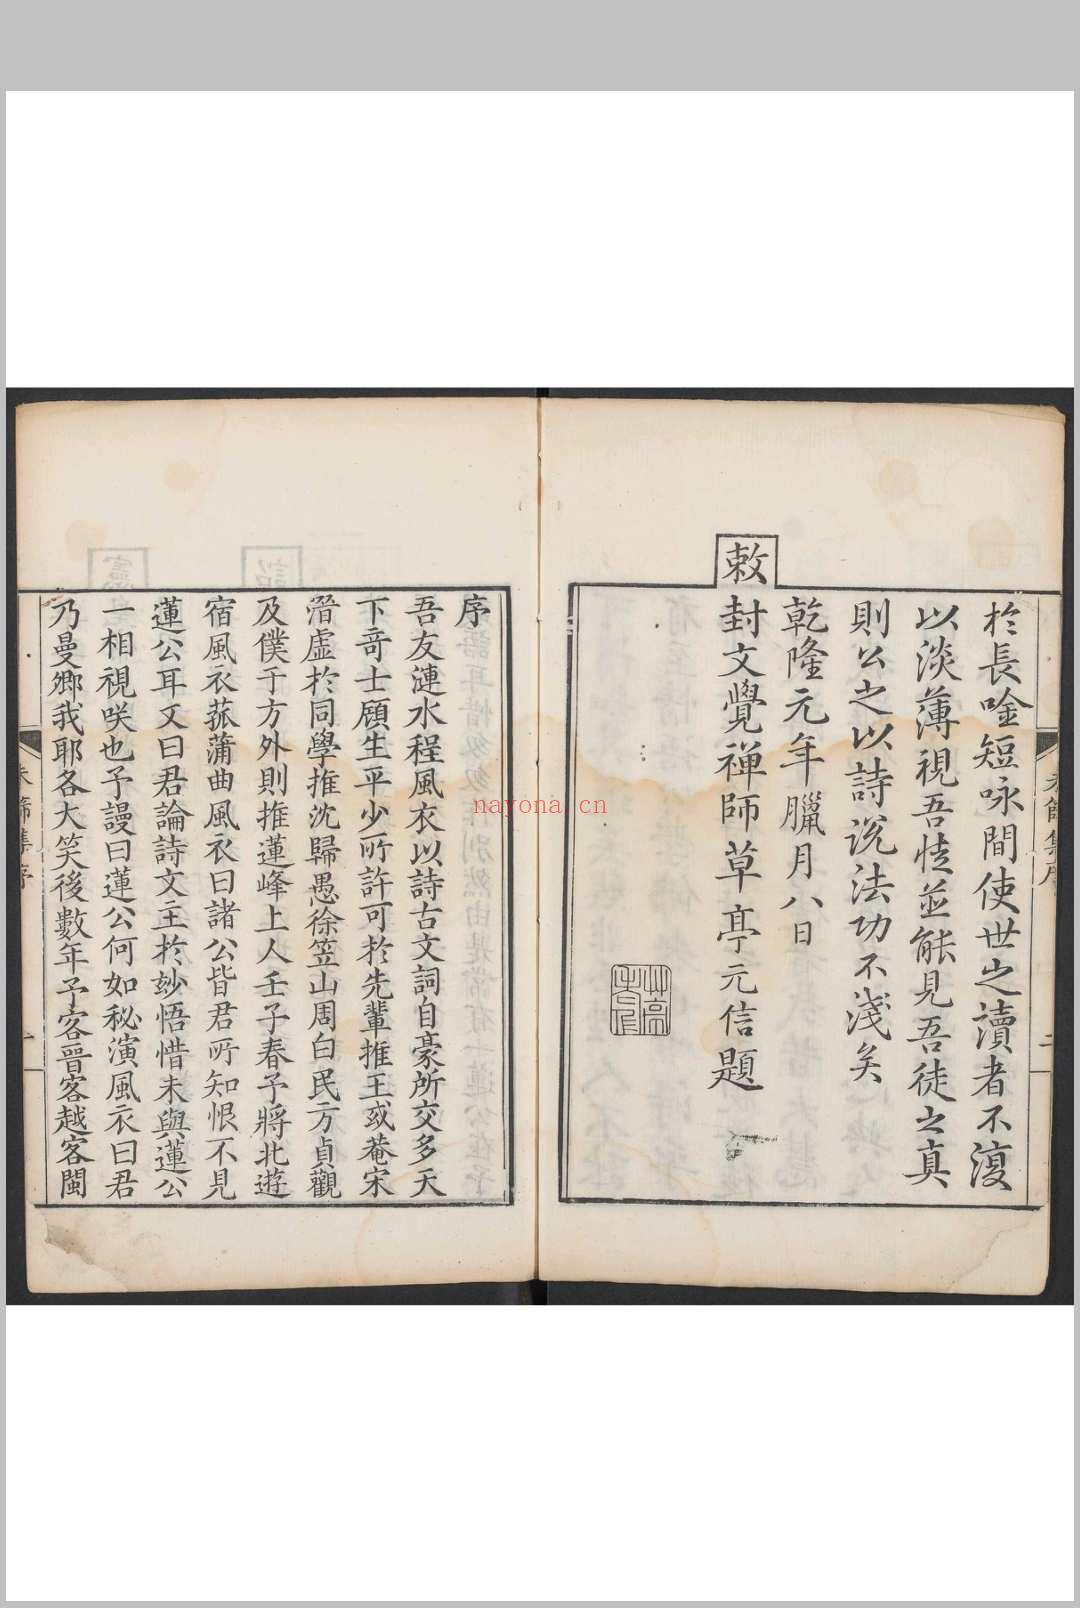 於長唫短咏間使世之讀者不復
以淡薄視吾恠並能見吾徒之真
則公之以詩說法功不淺矣
乾隆元年臘月八日
敕
封文覺禪師草亭元信題
序
吾友漣水程風衣以詩古文詞自豪所交多天
下奇士顧生平少所許可於先輩推王或菴宋
潛虛於同學推沈歸愚徐笠山周白民方貞觀
及僕于方外則推蓮峰上人壬子春予將北遊
宿風衣菰蒲曲風衣曰諸公皆君所知恨不見
蓮公耳又曰君論詩文主於妙悟惜未與蓮公
一相視咲也予謾曰蓮公何如秘演風衣曰君
乃曼卿我耶各大笑後數年予客晉客越客閩
nayona.cn